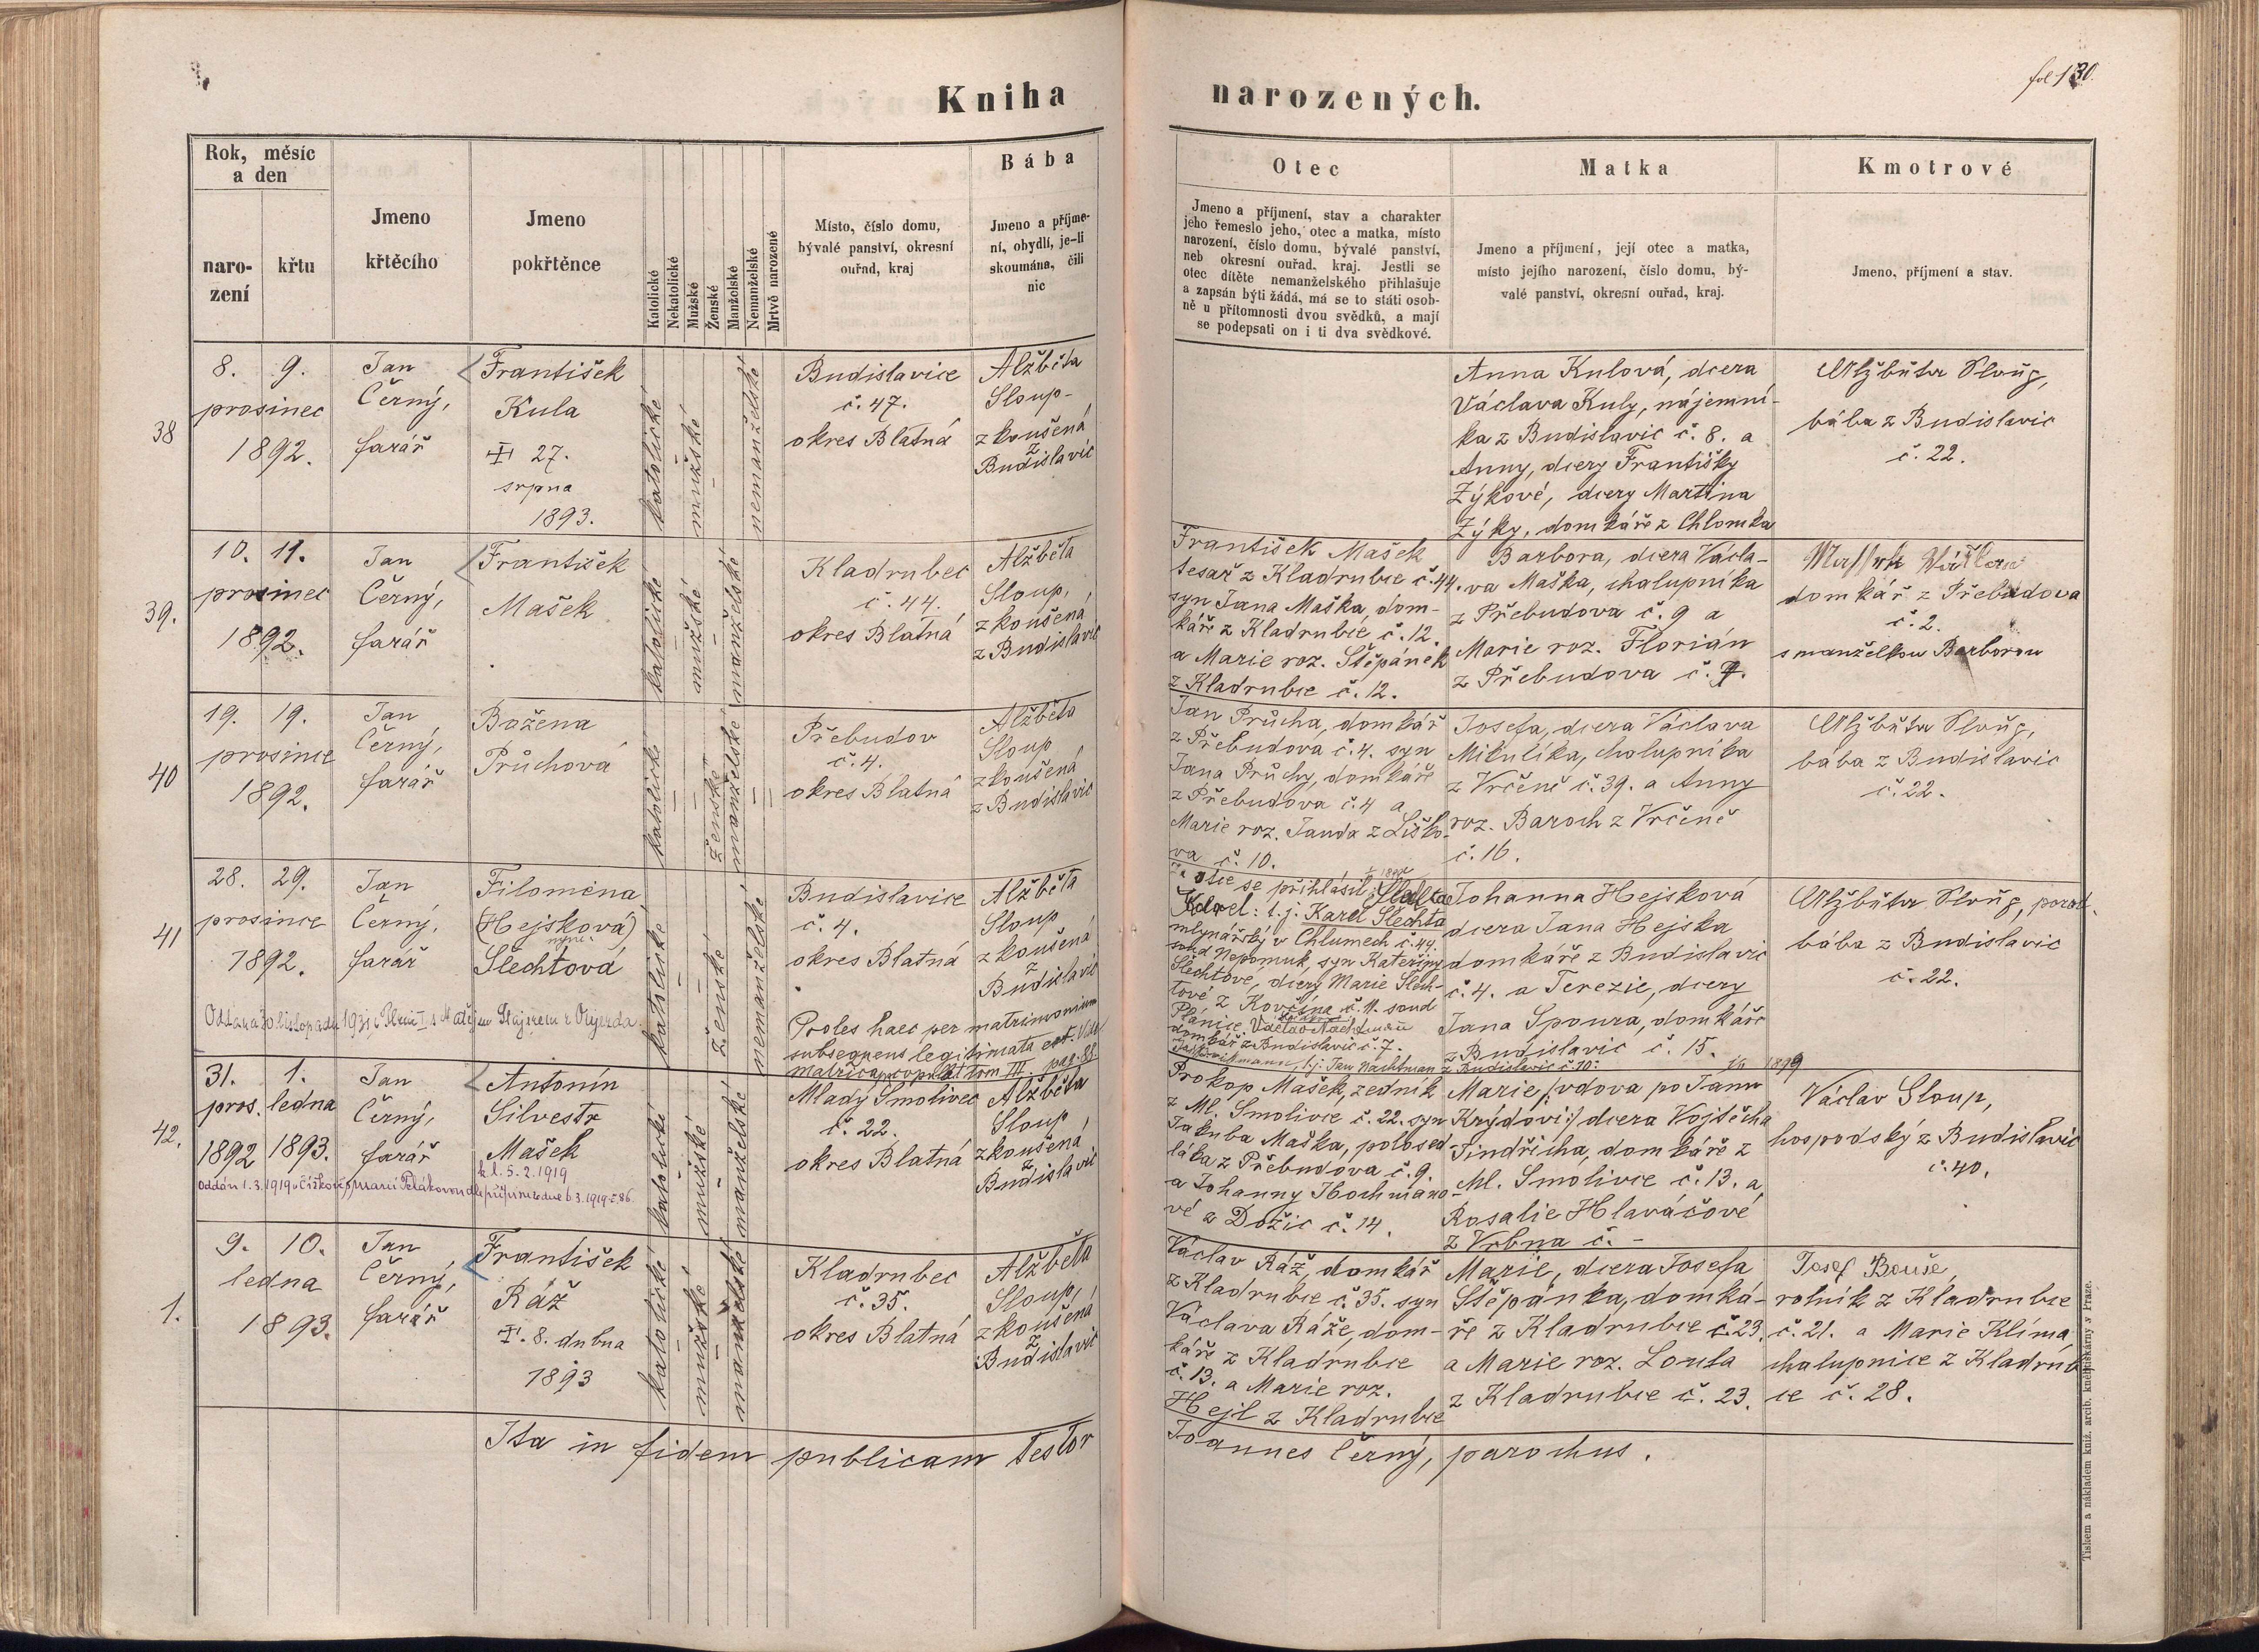 fol 130.
Kniha narozených.
Rok, měsíc
a den
naro-
zení
křtu
Jmeno
křtěcího
Jmeno
pokřtěnce
Katolické
Nekatolické
Mužské
Ženské
Manželské
Nemanželské
Mrtvě narozené
Místo, číslo domu,
bývalé panství, okresní
ouřad, kraj
Bába
Jmeno a příjme-
ní, obydlí, je-li
skoumána, čili
nic
Otec
Jmeno a příjmení, stav a charakter
jeho řemeslo jeho, otec a matka, místo
narození, číslo domu, bývalé panství,
neb okresní ouřad, kraj. Jestli se
otec dítěte nemanželského přihlašuje
a zapsán býti žádá, má se to státi osob-
ně u přítomnosti dvou svědků, a mají
se podepsati on i ti dva svědkové.
Matka
Jmeno a příjmení, její otec a matka,
místo jejího narození, číslo domu, bý-
valé panství, okresní ouřad, kraj.
Kmotrové
Jmeno, příjmení a stav.
38
8. 9.
prosinec
1892.
Jan
Černý,
farář
František
Kula
27.
srpna
1893.
katolické
mužské
nemanželské
Budislavice
č. 47.
okres Blatná
Alžběta
Sloup-
zkoušená
z
Budislavic
Anna Kulová, dcera
Václava Kuly, nájemní-
ka z Budislavic č. 8. a
Anny, dcery Františky
Zýkové, dcery Martina
Zýky, domkáře z Chlomka
Alžběta Sloup,
bába z Budislavic
č. 22.
39.
10. 11.
prosinec
1892.
Jan
Černý,
farář
František
Mašek
katolické
mužské
manželské
Kladrubec
č. 44.
okres Blatná
Alžběta
Sloup,
zkoušená
z Budislavic
František Mašek
tesař z Kladrubce č. 44.
syn Jana Maška, dom-
káře z Kladrubce č. 12.
a Marie roz. Štěpánek
z Kladrubce č. 12.
Barbora, dcera Václa-
va Maška, chalupníka
z Přebudova č. 9 a
Marie roz. Florián
z Přebudova č.
domkář z Přebudova
č. 2.
s manželkou Barborou
40
19. 19.
prosince
1892.
Jan
Černý,
farář
Božena
Průchová
katolické
ženské
manželské
Přebudov
č. 4.
okres Blatná
Alžběta
Sloup
zkoušená
z Budislavic
Jan Průcha, domkář
z Přebudova č. 4. syn
Jana Průchy, domkáře
z Přebudova č. 4 a
Marie roz. Janda z Liško-
va č. 10.
Josefa, dcera Václava
Mikulíka, chalupníka
z Vrčeně č. 39. a Anny
roz. Baroch z Vrčeně
č. 16.
Alžběta Sloup,
bába z Budislavic
č. 22.
41
28. 29.
prosince
1892.
Jan
Černý,
farář
Filoména
(Hejsková)
nyní
Šlechtová
katolické
ženské
nemanželské
Budislavice
č. 4.
okres Blatná
Alžběta
Sloup
zkoušená
z
Budislavic
Oddána 30 listopadu 1931 v Plzni I. s Matějem z Oujezda
Proles haec per matrimonium
subsequens legitimata est. Vide
matrica copulat tom III. pag. 88
za otce se přihlásil:
Karel: t. j. Karel Šlechta
mlynářský v Chlumech č. 44.
soud Nepomuk, syn Kateřiny
Šlechtové, dcery Marie Šlech-
tové z Kovčína č. 11. soud
Plánice.
domkář z Budislavic č. 7.
t. j. Jan Nachtman z Budislavic č. 10.
Johanna Hejsková
dcera Jana Hejska
domkáře z Budislavic
č. 4. a Terezie, dcery
Jana Spoura, domkáře
z Budislavic č. 15.
Alžběta Sloup, porod.
bába z Budislavic
č. 22.
42.
31. 1.
pros. ledna
1892 1893.
Jan
Černý,
farář
Antonín
Silvestr
Mašek
k l. 5. 2. 1919
Oddán 1. 3. 1919
katolické
mužské
manželské
Mladý Smolivec
č. 22.
okres Blatná
Alžběta
Sloup
zkoušená
z
Budislavic
Prokop Mašek, zedník
z Ml. Smolivce č. 22. syn
Jakuba Maška, polosed-
láka z Přebudova č. 9.
a Johanny Hochmano-
vé z Dožic č. 14.
Marie /: vdova po Janu
Krýdovi :/ dcera Vojtěcha
Jindřicha, domkáře z
Ml. Smolivce č. 13. a
Rosalie Hlaváčové
z Vrbna č. -
Václav Sloup,
hospodský z Budislavic
č. 40.
1.
9. 10.
ledna
1893.
Jan
Černý,
farář
František
Ráž
8. dubna
1893
katolické
mužské
manželské
Kladrubec
č. 35.
okres Blatná
Alžběta
Sloup,
zkoušená
z
Budislavic
Václav Ráž, domkář
z Kladrubce č. 35. syn
Václava Ráže, dom-
káře z Kladrubce
č. 13. a Marie roz.
Hejl z Kladrubce
Marie, dcera Josefa
Štěpánka, domká-
ře z Kladrubce č. 23.
a Marie roz. Louta
z Kladrubce č. 23.
Josef Bouše,
rolník z Kladrubce
č. 21. a Marie Klíma
chalupnice z Kladrub-
ce č. 28.
Ita in fidem publicam testor
Joannes Černý, parochus.
Tiskem a nákladem kníž. arcib. knihtiskárny v Praze.